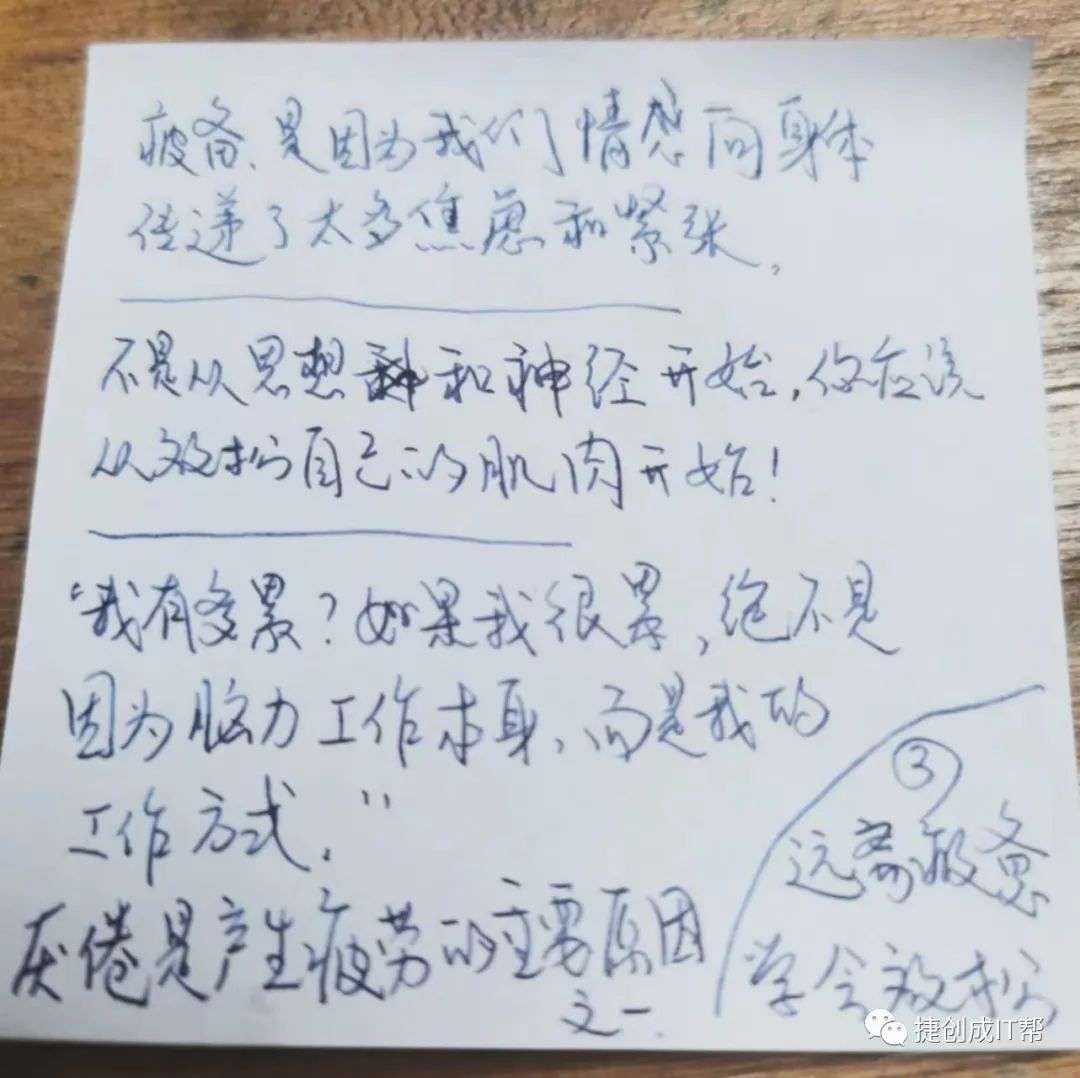 疲备、是因为我们情感向身体
传递了太多焦虑和紧张。
不是从思想和神经开始,你应该
从放松自己的肌肉开始!
“我有多累?如果我很累,绝不是
因为脑力工作本身、而是我的
工作方式。”
厌倦是产生疲劳的主要原因
之一.
③
远离疲惫
学会放松
捷创成IT帮